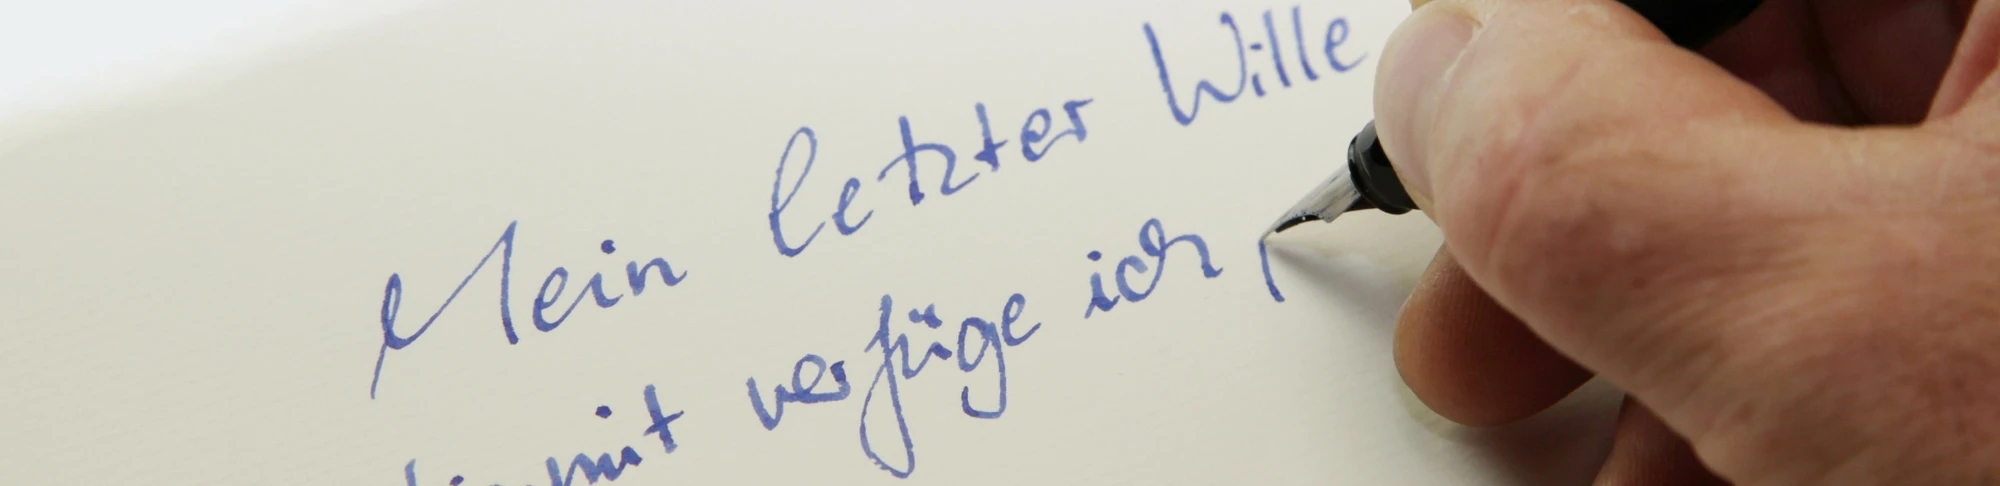 Mein letzter Wille
hiermit verfüge ich